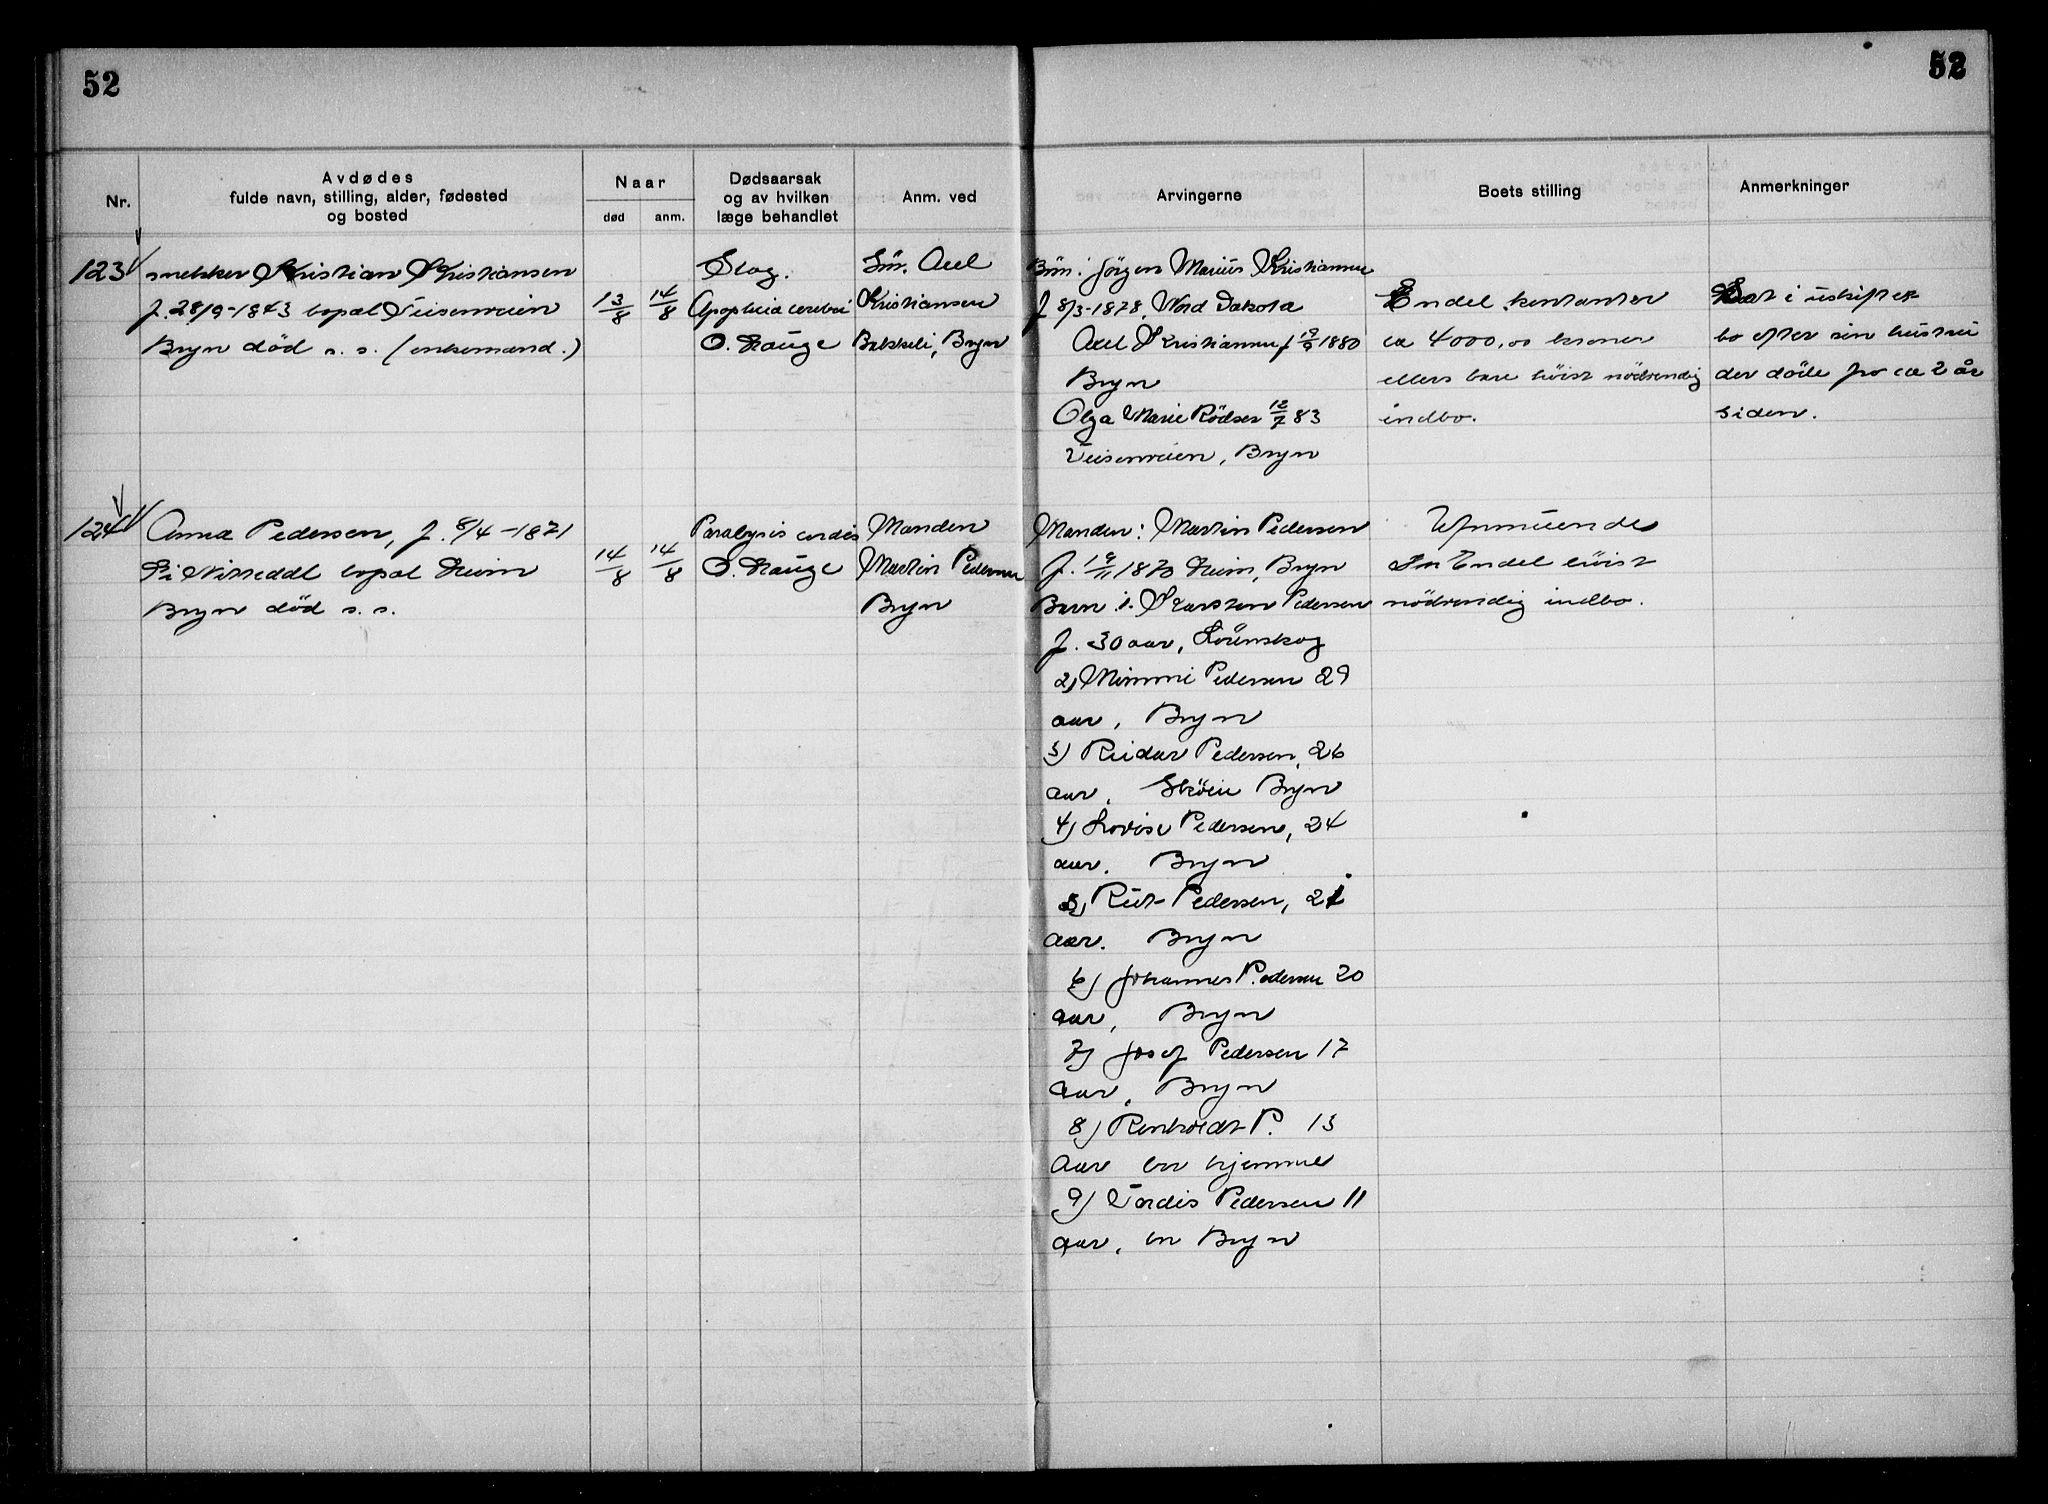 52
52
Nr.
Avdødes
fulde navn, stilling, alder, fødested
og bosted
Naar
død
anm.
Dødsaarsak
og av hvilken
læge behandlet
Anm. ved
Arvingerne
Boets stilling
Anmerkninger
123
snekker Kristian Kristiansen
f. 28/9-1843 bopæl
Bryn død s. s. (enkemand.)
13/8
14/8
Slag.
Apoplexia cerebri
O. Hauge
Sön. Axel
Kristiansen
Bakkeli, Bryn
Börn: Jörgen Marius Kristiansen
f 8/3-1878, Nord Dakota
Axel Kristiansen f 1880
Bryn
Olga Marie Rödser 12/7 83
Bryn
Endel kontanter
ca 4000,00 kroner
ellers bare höist nödvendig
indbo.
Sat i uskiftet
bo efter sin hustru
der döde for ca 2 år
siden.
124
Anna Pedersen, f. 8/4-1871
bopæl Heim
Bryn död s. s.
14/8
14/8
Paralysis cordis
O. Hauge
Manden
Martin Pedersen
Bryn
Manden: Martin Pedersen
f. 1870 Heim, Bryn
Barn: 1. Karsten Pedersen
f. 30 aar, Lörenskog
2) Mimmi Pedersen 29
aar, Bryn
3) Reidar Pedersen, 26
aar, Sköien Bryn
4) Lovise Pedersen, 24
aar. Bryn
5) Rut Pedersen, 21
aar. Bryn
6) Johannes Pedersen 20
aar, Bryn
7) Josef Pedersen 17
aar, Bryn
8) Renholdt P. 13
aar bor hjemme
9) Vordis Pedersen 11
aar, Bryn
Uformuende
Endel höist
nödvendig indbo.